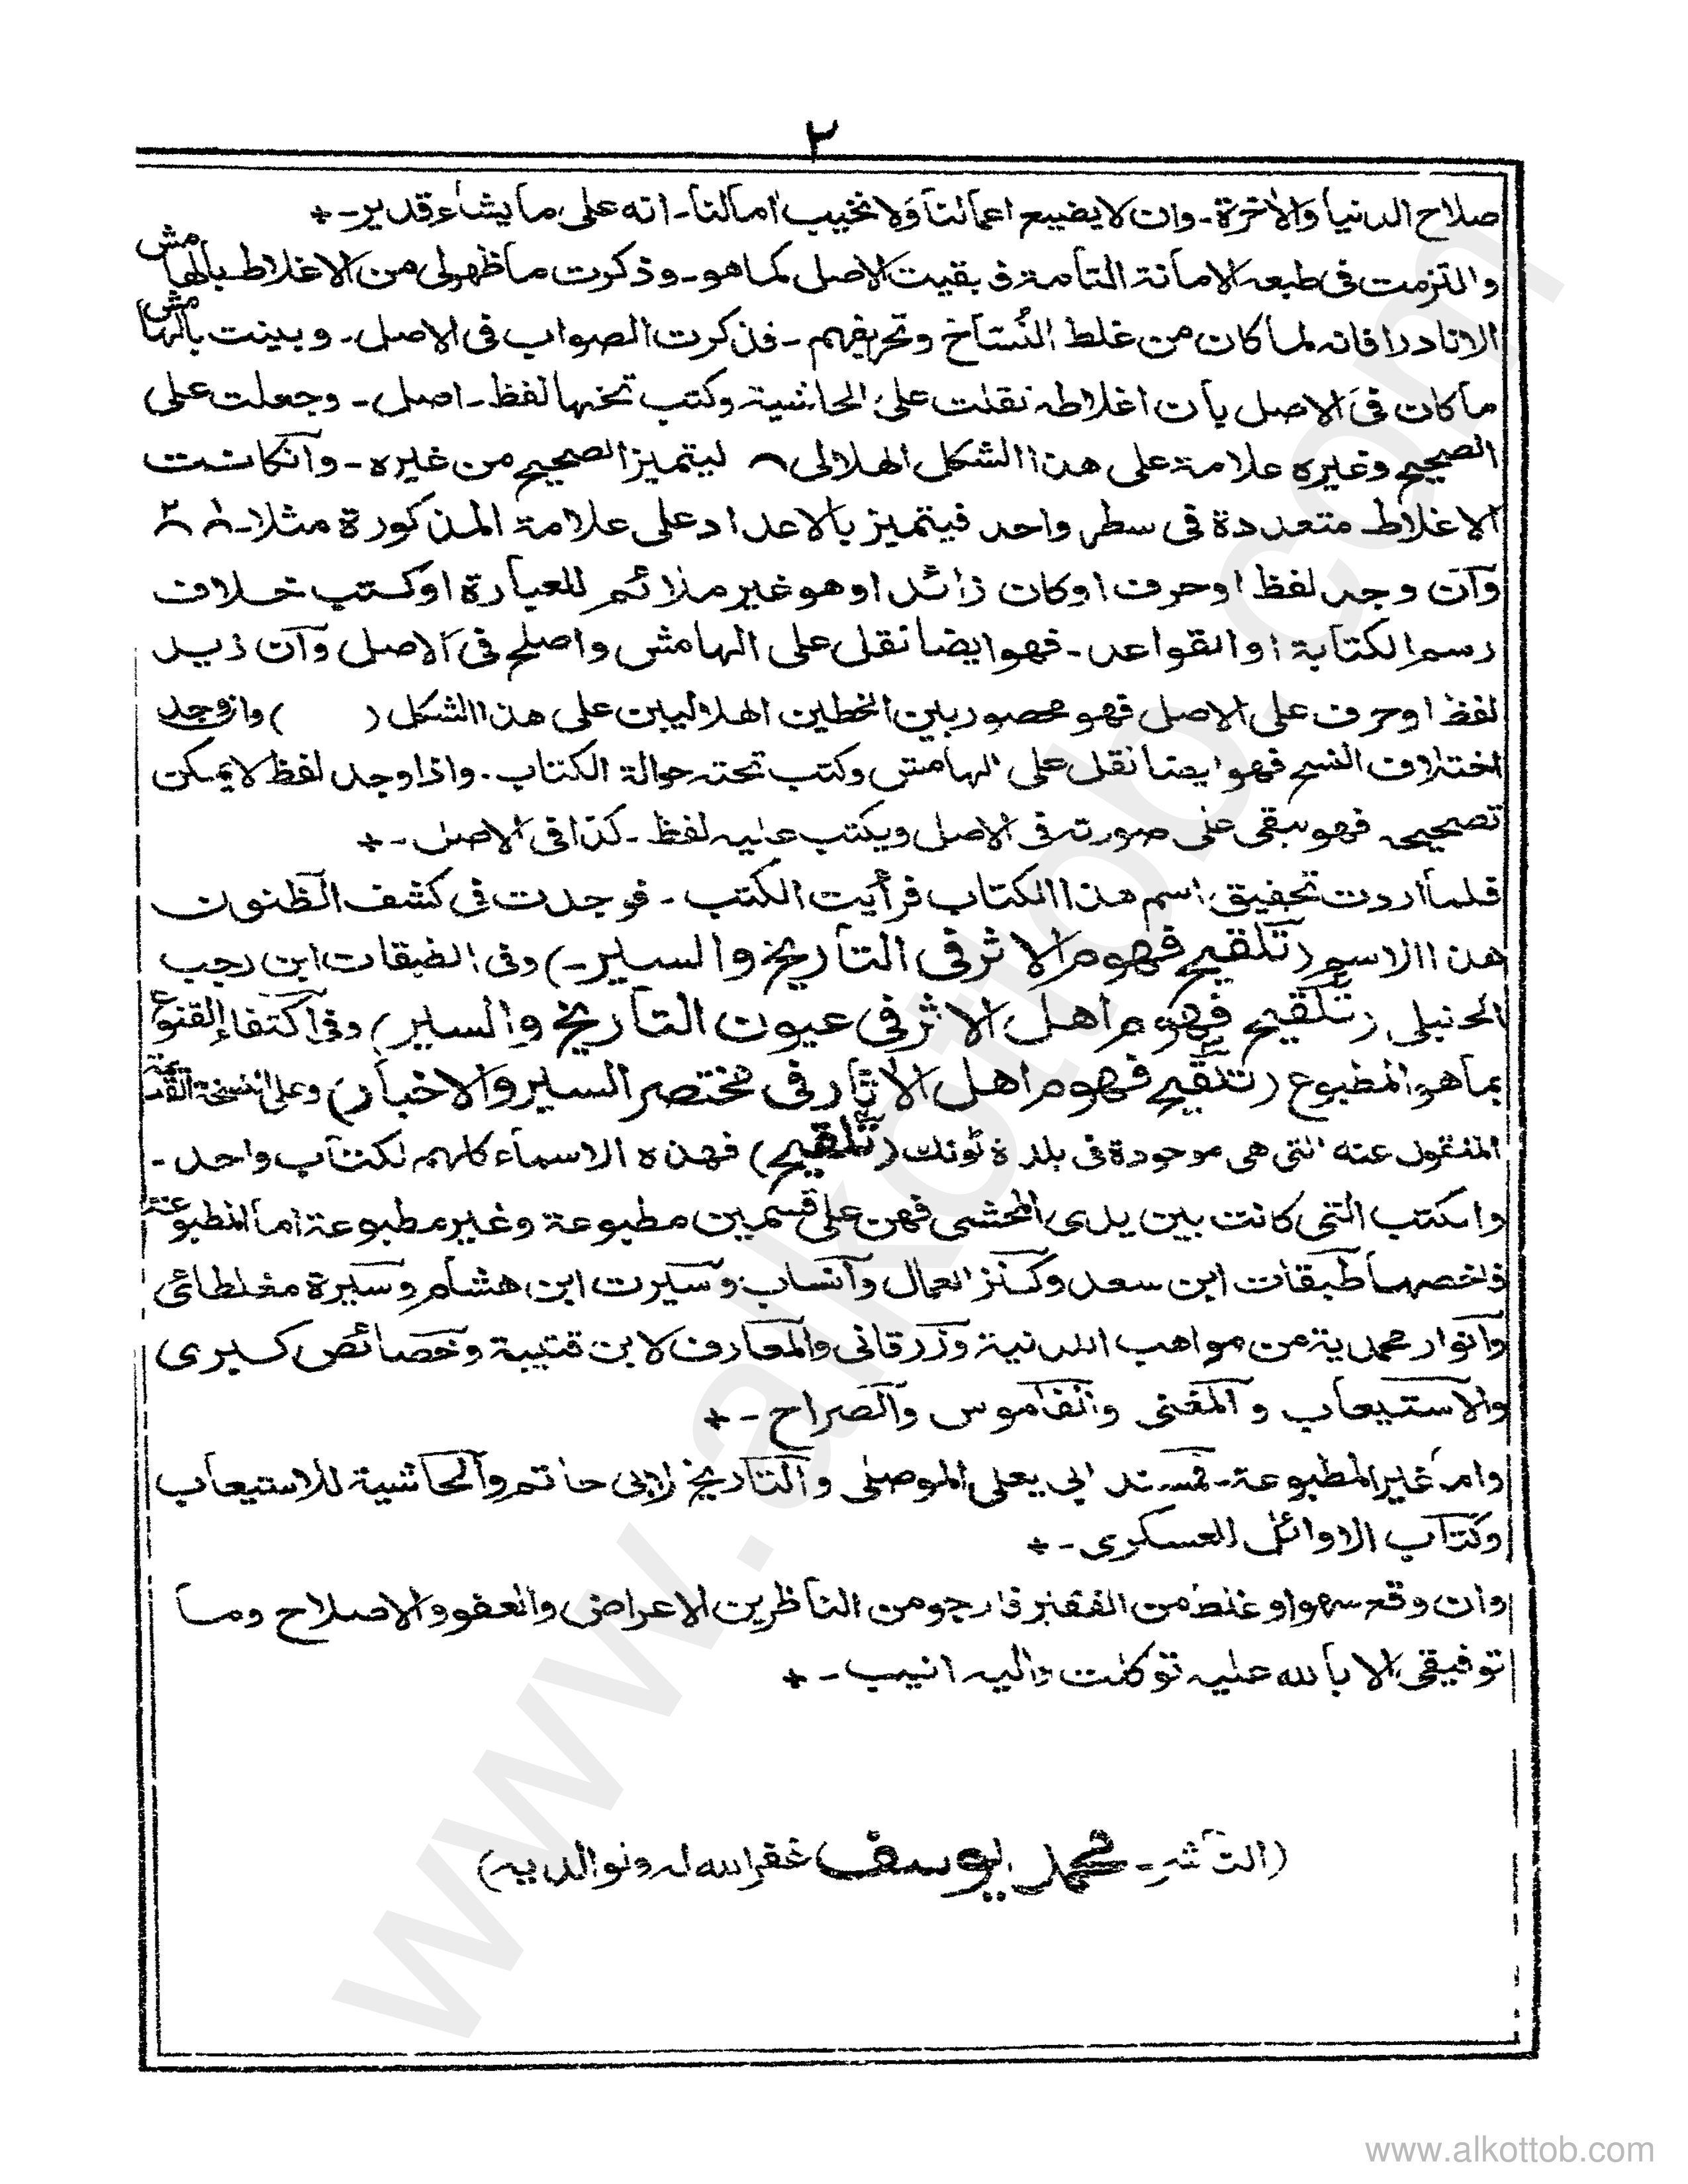 ٢
صلاح الدنيا والآخرة ـ وان لا يضيع اعمالنا ولا تخيب امالنا ـ انه على ما يشاء قدير ـ +
والتزمت فى طبعه الامانة التامة فبقيت الاصل كما هو ـ وذكرت ما ظهر لى من الاغلاط بالهامش
الا نادرا فانه لما كان من غلط النُساخ وتحريفهم ـ فذكرت الصواب فى الاصل ـ وبينت بالهامش
ما كان فى الاصل بان اغلاطه نقلت على الحاشية وكتب تحتها لفظ ـ اصل ـ وجعلت على
الصحيح وغيره علامة على هذا الشكل الهلالى ؎ ليتميز الصحيح من غيره ـ وان كانت
الاغلاط متعددة فى سطر واحد فيتميز بالاعداد على علامة المذكورة مثلا ـ ١ ٢
وان وجد لفظ او حرف او كان زائد او هو غير ملائم للعبارة او كتب خلاف
رسم الكتابة او القواعد ـ فهو ايضا نقل على الهامش واصلح فى الاصل وان زيد
لفظ او حرف على الاصل فهو محصور بين الخطين الهلاليين على هذا الشكل ( ) وان وجد
اختلاف النسخ فهو ايضا نقل على الهامش وكتب تحته حوالة الكتاب ـ واذا وجد لفظ لا يمكن
تصحيحه فهو يبقى على صورته فى الاصل ويكتب عليه لفظ ـ كذا فى الاصل ـ +
فلما اردت تحقيق اسم هذا الكتاب فرأيت الكتب ـ فوجدت فى كشف الظنون
هذا الاسم (تلقيح فهوم الاثر فى التاريخ والسير ـ) وفى الطبقات ابن رجب
الحنبلى (تلقيح فهوم اهل الاثر فى عيون التاريخ والسير) وفى اكتفاء القنوع
بما هو المطبوع (تلقيح فهوم اهل الآثار فى مختصر السير والاخبار) وعلى النسخة القديمة
المنقول عنه التى هى موجودة فى بلدة ٹونك (تلقيح) فهذه الاسماء كلهم لكتاب واحد ـ
والكتب التى كانت بين يدى المحشى فهن على قسمين مطبوعة وغير مطبوعة اما المطبوعة
فاخصها طبقات ابن سعد وكنز العمال وانساب وسيرت ابن هشام وسيرة مغلطائى
وانوار محمدية من مواهب اللدنية وزرقانى والمعارف لابن قتيبة وخصائص كبرى
والاستيعاب والمغنى والقاموس والصراح ـ +
واما غير المطبوعة ـ فمسند ابى يعلى الموصلى والتاريخ لابى حاتم والحاشية للاستيعاب
وكتاب الاوائل للعسكرى ـ +
وان وقع سهو او غلط من الفقير فارجو من الناظرين الاعراض والعفو والاصلاح وما
توفيقى الا بالله عليه توكلت واليه انيب ـ +
(الناشر ـ محمد يوسف غفر الله له ولوالديه)
www.alkottob.com
www.alkottob.com